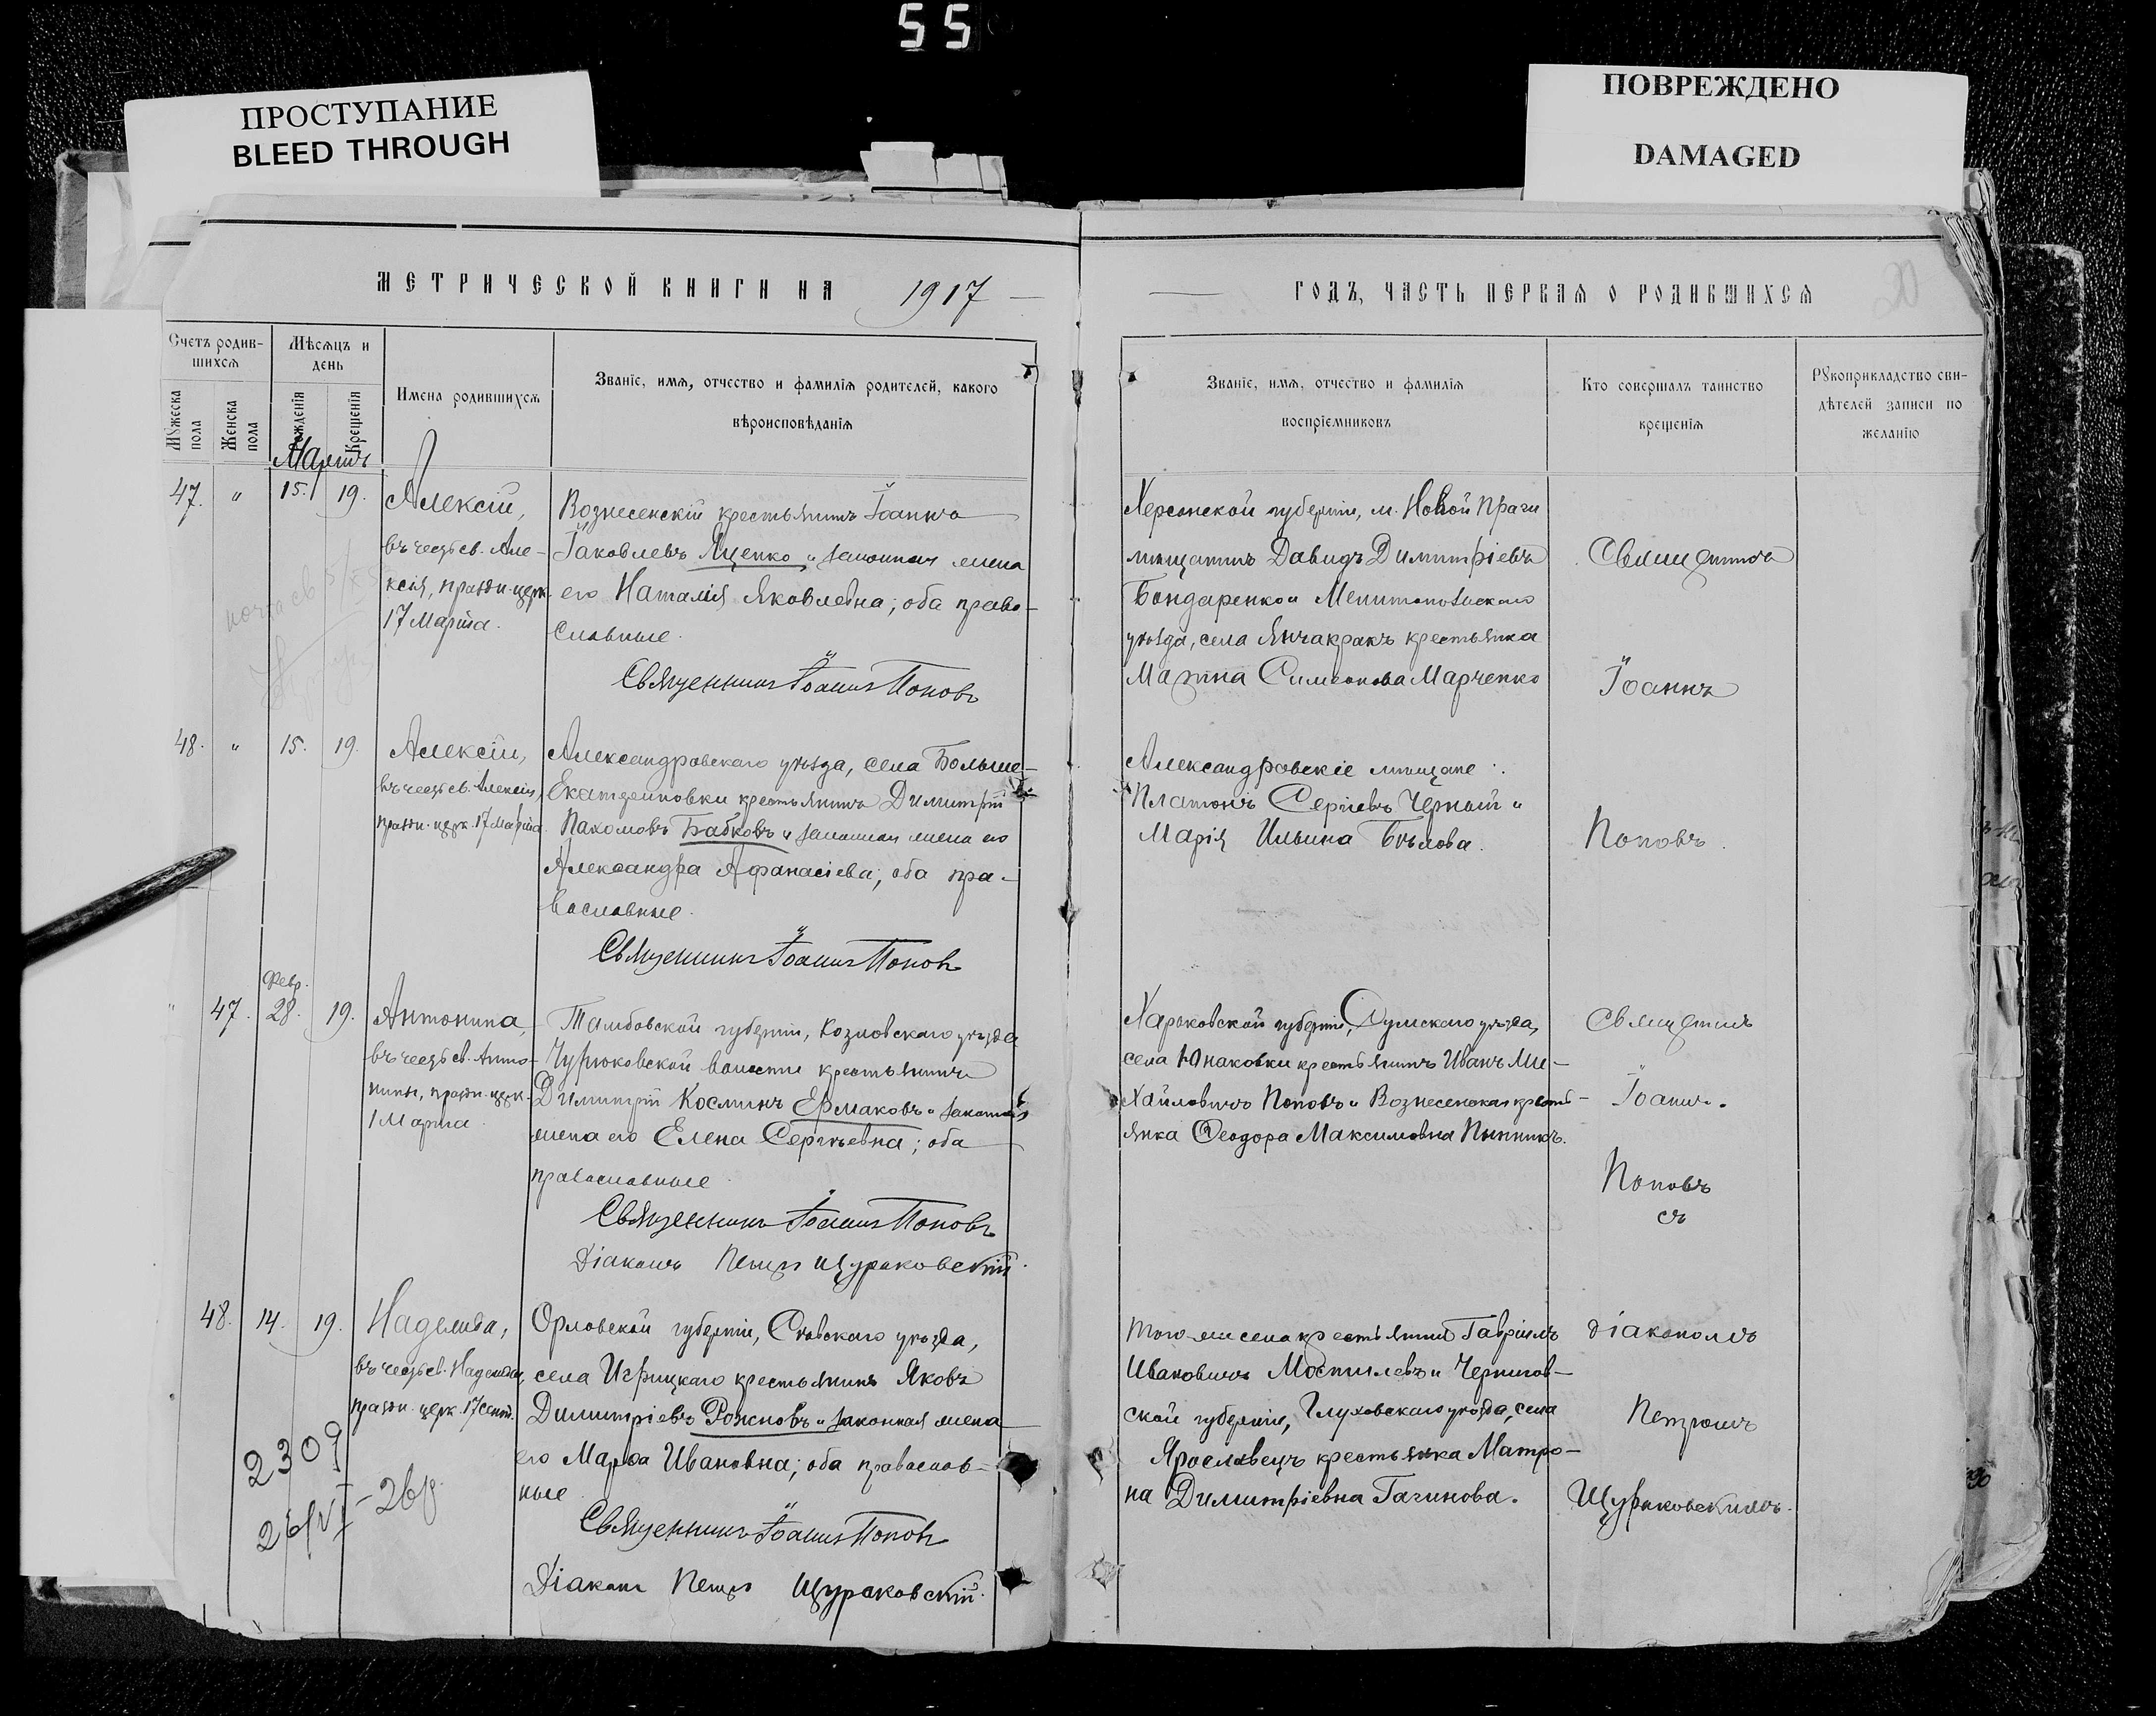 55
ПРОСТУПАНИЕ
BLEED THROUGH
ПОВРЕЖДЕНО
DAMAGED
МЕТРИЧЕСКОЙ КНИГИ НА 1917
ГОДЪ, ЧАСТЬ ПЕРВАЯ О РОДИВШИХСЯ
20
Счетъ родив-
шихся
Мѣсяцъ и
день
Мужеска
пола
Женска
пола
Рожденія
Крещенія
Имена родившихся
Званіе, имя, отчество и фамилія родителей, какого
вѣроисповѣданія
Званіе, имя, отчество и фамилія
воспріемниковъ
Кто совершалъ таинство
крещенія
Рукоприкладство сви-
дѣтелей записи по
желанію
Мартъ
47. " 15. 19.
Алексій,
въ честь св. Але-
ксія, празн. церк.
17 Марта.
Вознесенскій крестьянинъ Іоаннъ
Іаковлевъ Яценко и законная жена
его Наталія Яковлевна; оба право-
славные.
Священникъ Іоаннъ Поповъ
Херсонской губерніи, м. Новой Праги
мѣщанинъ Давидъ Димитріевъ
Бондаренко и Мелитопольскаго
уѣзда, села Янчакракъ крестьянка
Марѳа Симеонова Марченко
Священникъ
Іоаннъ
48. " 15. 19.
Алексій,
въ честь св. Алексія,
празн. церк. 17 Марта.
Александровскаго уѣзда, села Больше-
Екатериновки крестьянинъ Димитрій
Пахомовъ Бабковъ и законная жена его
Александра Афанасіева; оба пра-
вославные.
Священникъ Іоаннъ Поповъ
Александровскіе мѣщане:
Платонъ Сергіевъ Черный и
Марія Ильина Бѣлова.
Поповъ.
Февр.
" 47. 28. 19.
Антонина,
въ честь св. Анто-
нины, празн. церк.
1 Марта.
Тамбовской губерніи, Козловскаго уѣзда
Чурюковской волости крестьянинъ
Димитрій Косминъ Ермаковъ и законная
жена его Елена Сергѣевна; оба
православные.
Священникъ Іоаннъ Поповъ
Діаконъ Петръ Щураковскій.
Харьковской губерніи, Сумскаго уѣзда,
села Юнаковки крестьянинъ Иванъ Ми-
хайловичъ Поповъ и Вознесенская кресть-
янка Ѳеодора Максимовна Пынникъ.
Священникъ
Іоаннъ
Поповъ
съ
48. 14. 19.
Надежда,
въ честь св. Надежды,
празн. церк. 17 Сент.
Орловской губерніи, Сѣвскаго уѣзда,
села Игрицкаго крестьянинъ Яковъ
Димитріевъ Рожновъ и законная жена
его Марѳа Ивановна; оба православ-
ные.
Священникъ Іоаннъ Поповъ
Діаконъ Петръ Щураковскій.
Того-же села крестьянинъ Гавріилъ
Ивановичъ и Чернигов-
ской губерніи, Глуховскаго уѣзда, села
Ярославецъ крестьянка Матро-
на Димитріевна Гачинова.
діакономъ
Петромъ
Щураковскимъ.
2309
26/VI - 26 р.